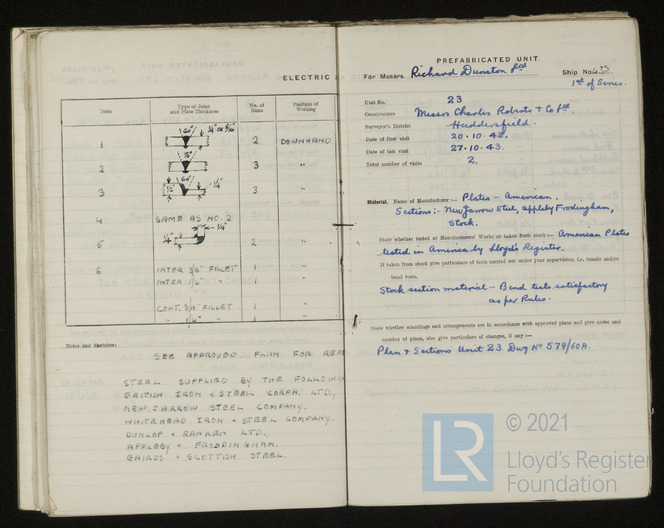 ELECTRIC
Item
Type of Joint
and Plate Thickness
No. of
Runs
Position of
Welding
1
60°
1/4" OR 5/16"
2
DOWNHAND
2
3
"
3
60°
1/4"
3
"
4
SAME AS NO. 2
5
1/4"
1/4"
2
"
6
INTER 3/16" FILLET
1
"
INTER 1/4" "
1
"
CONT. 3/16" FILLET
1
"
" 1/4" "
1
"
Notes and Sketches:
SEE APPROVED PLAN FOR REFE
STEEL SUPPLIED BY THE FOLLOWIN
BRITISH IRON & STEEL CORPN. LTD.,
NEW JARROW STEEL COMPANY.
WHITEHEAD IRON & STEEL COMPANY.
DUNLOP & RANKEN LTD.,
APPLEBY & FRODINGHAM.
BAIRDS & SCOTTISH STEEL.
PREFABRICATED UNIT.
For Messrs. Richard Dunston Ltd
Ship No. 433
1st of Series.
Unit No. 23
Constructors Messrs Charles Roberts & Co Ltd
Surveyor's District Huddersfield.
Date of first visit 20.10.43.
Date of last visit 27.10.43.
Total number of visits 2.
Material. Name of Manufacturer:— Plates - American.
Sections:- New Jarrow Steel, Appleby Frodingham,
Stock.
State whether tested at Manufacturers' Works or taken from stock:— American Plates
tested in America by Lloyd's Register.
If taken from stock give particulars of tests carried out under your supervision, i.e. tensile and/or
bend tests.
Stock section material - Bend tests satisfactory
as per Rules.
State whether scantlings and arrangements are in accordance with approved plans and give name and
number of plans, also give particulars of changes, if any:—
Plan & Sections Unit 23 Dwg No 579/60A.
© 2021
LR
Lloyd's Register
Foundation